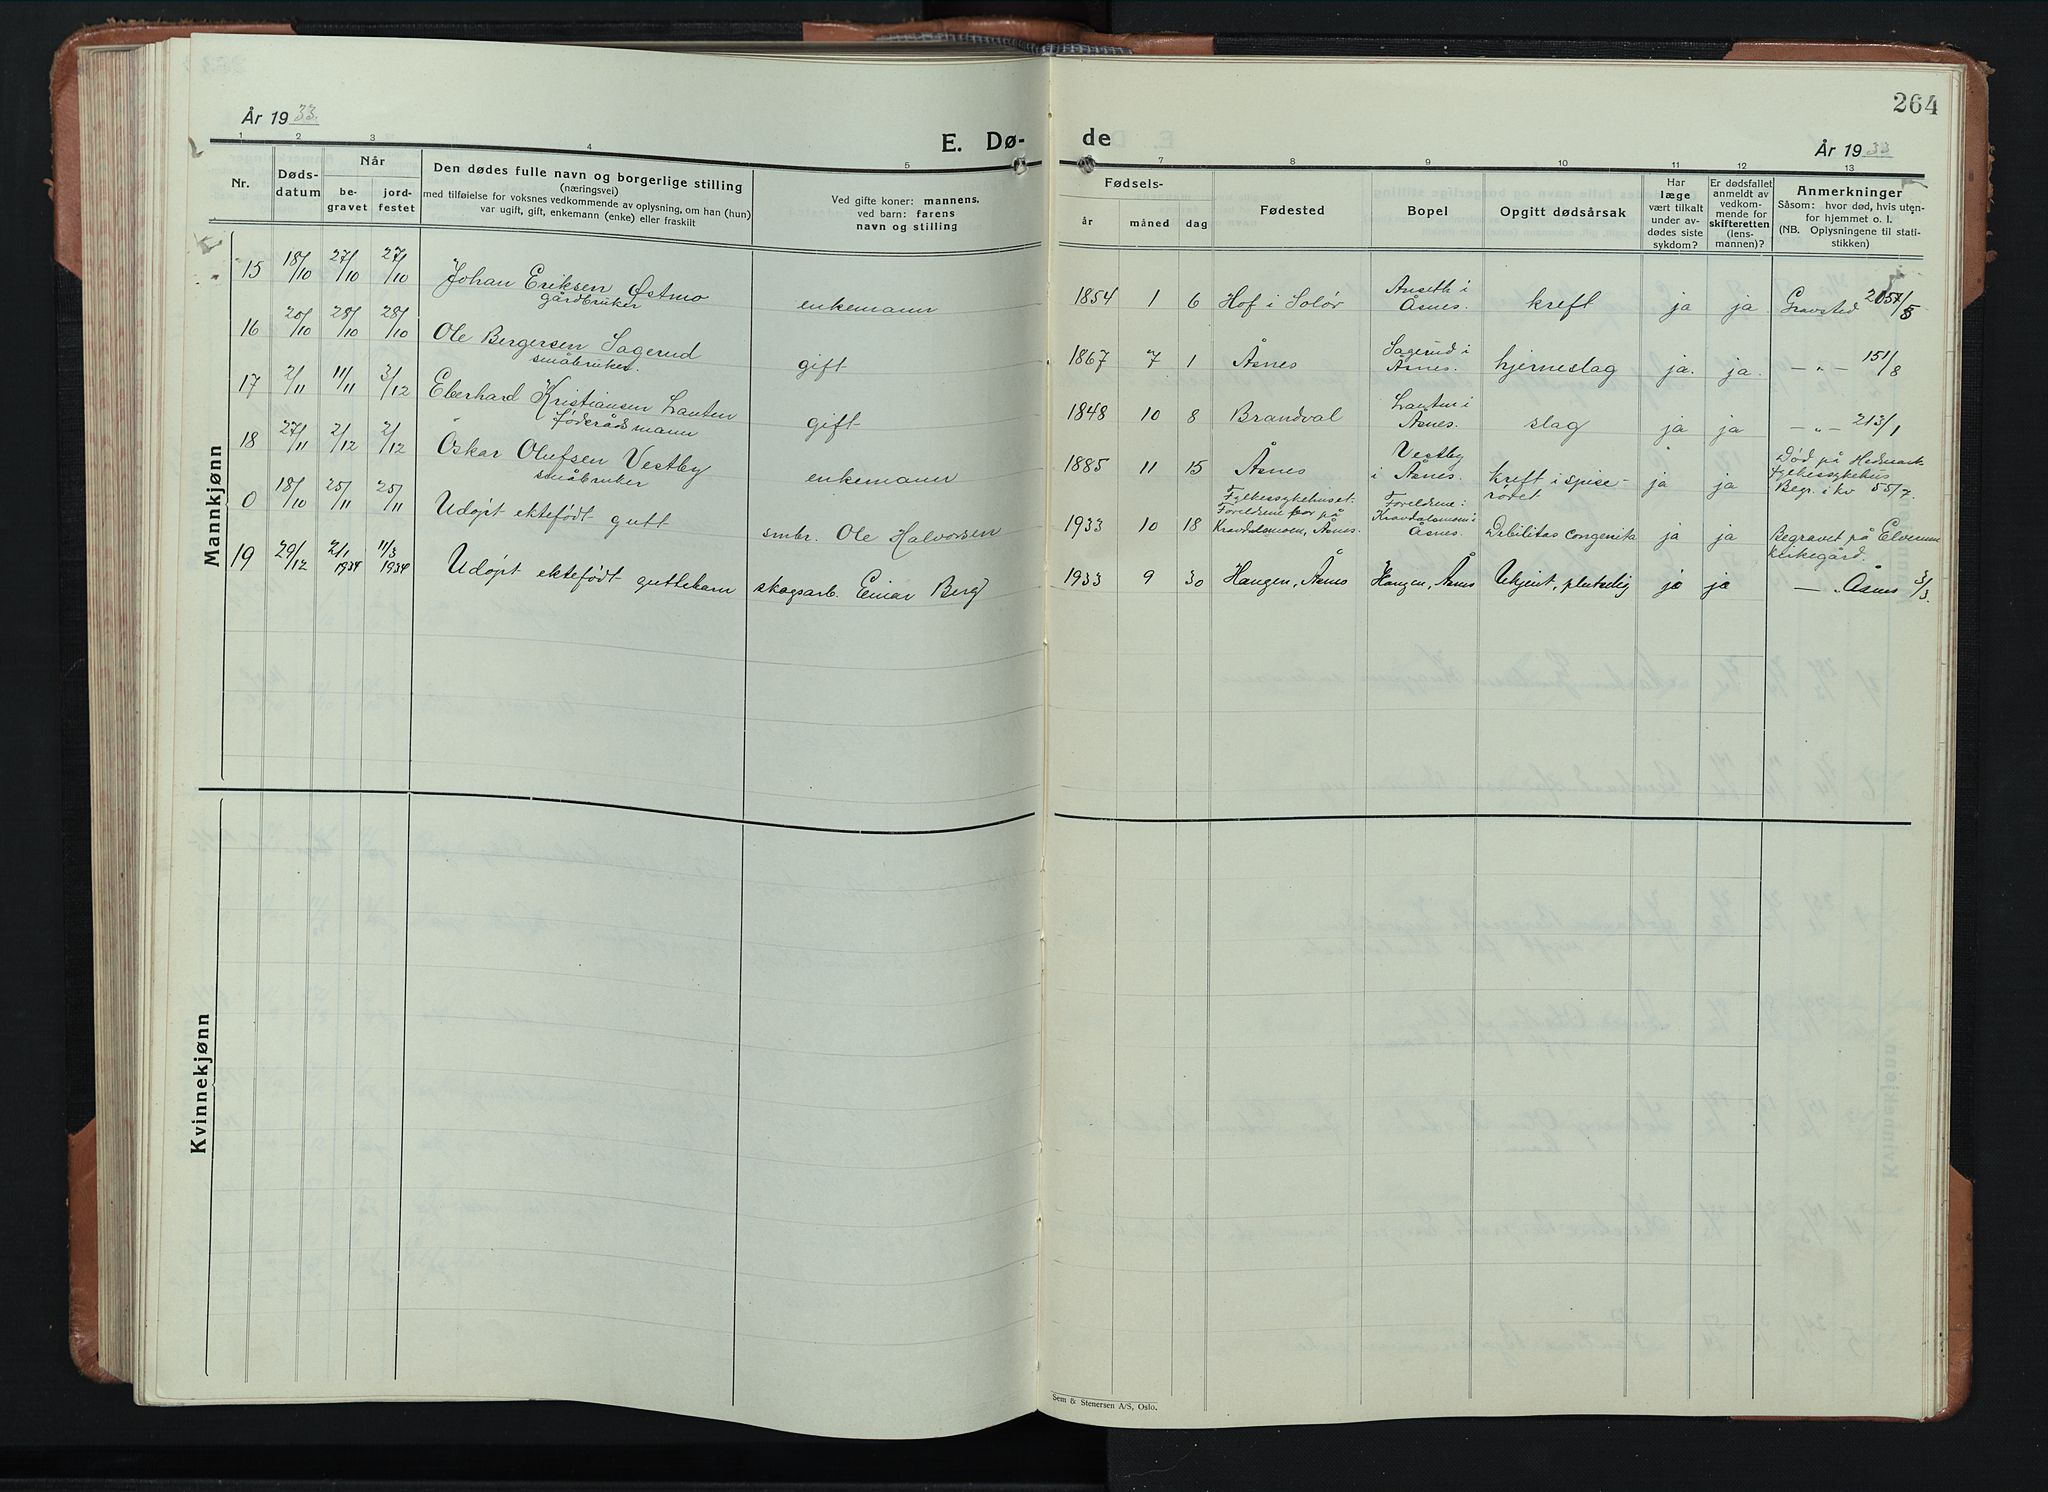 264
År 1933.
E. Dø-
de
År 1933
1 2 3 4 5
7 8 9 10 11 12 13
Nr.
Døds-
datum
Når
be-
gravet
jord-
festet
Den dødes fulle navn og borgerlige stilling
(næringsvei)
med tilføielse for voksnes vedkommende av oplysning, om han (hun)
var ugift, gift, enkemann (enke) eller fraskilt
Ved gifte koner: mannens,
ved barn: farens
navn og stilling
Fødsels-
år måned dag
Fødested
Bopel
Opgitt dødsårsak
Har
læge
vært tilkalt
under av-
dødes siste
sykdom?
Er dødsfallet
anmeldt av
vedkom-
mende for
skifteretten
(lens-
mannen)?
Anmerkninger
Såsom: hvor død, hvis uten-
for hjemmet o. l.
(NB. Oplysningene til stati-
stikken)
Mannkjønn
15 18/10 27/10 27/10 Johan Eriksen Østmo
gårdbruker enkemann
1854 1 6 Hof i Solør Anseth i
Åsnes. kreft ja ja Gravsted
16 20/10 28/10 28/10 Ole Bergersen Sagerud
småbruker. gift
1867 7 1 Åsnes Sagerud i
Åsnes. hjerneslag ja. ja. — " — 151/8
17 2/11 11/11 3/12 Eberhard Kristiansen Lauten
føderådsmann gift
1848 10 8 Brandval Lauten i
Åsnes. slag ja ja — " — 213/1
18 27/11 2/12 2/12 Oskar Olufsen Vestby
småbruker enkemann
1885 11 15 Åsnes Vestby
i Åsnes. kreft i spise-
røret ja ja Død på Hedmark
fylkessykehus
Begr. i kv 55/7.
0 18/10 25/11 25/11 Udøpt ektefødt gutt smbr. Ole Halvorsen
1933 10 18 Fylkessykehuset.
Foreldrene bor på
Kravdalsmoen, Åsnes. Foreldrene:
Kravdalsmoen i
Åsnes. Debilitas congenita ja ja Begravet på Elverum
kirkegård.
19 29/12 2/1 1934 11/3 1934 Udøpt ektefødt guttebarn skogsarb. Einar Berg
1933 9 30 Haugen, Åsnes Haugen, Åsnes Ukjent, plutselig ja ja — " Åsnes 3/3.
Kvinnekjønn
Sem & Stenersen A/S, Oslo.